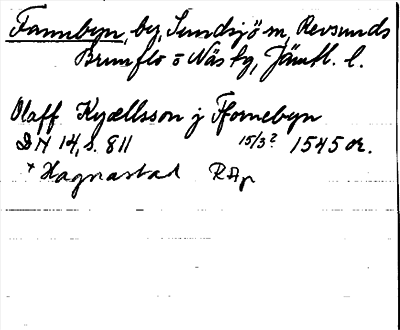 Fannbyn, by, Sundsjö sn, Revsunds
Brunflo o Näs tg, Jämtl. l.
Olaff Kyællsson j Ffornebyn
DN 14, s. 811 15/3? 1545 or.
* Hagnastad RAp